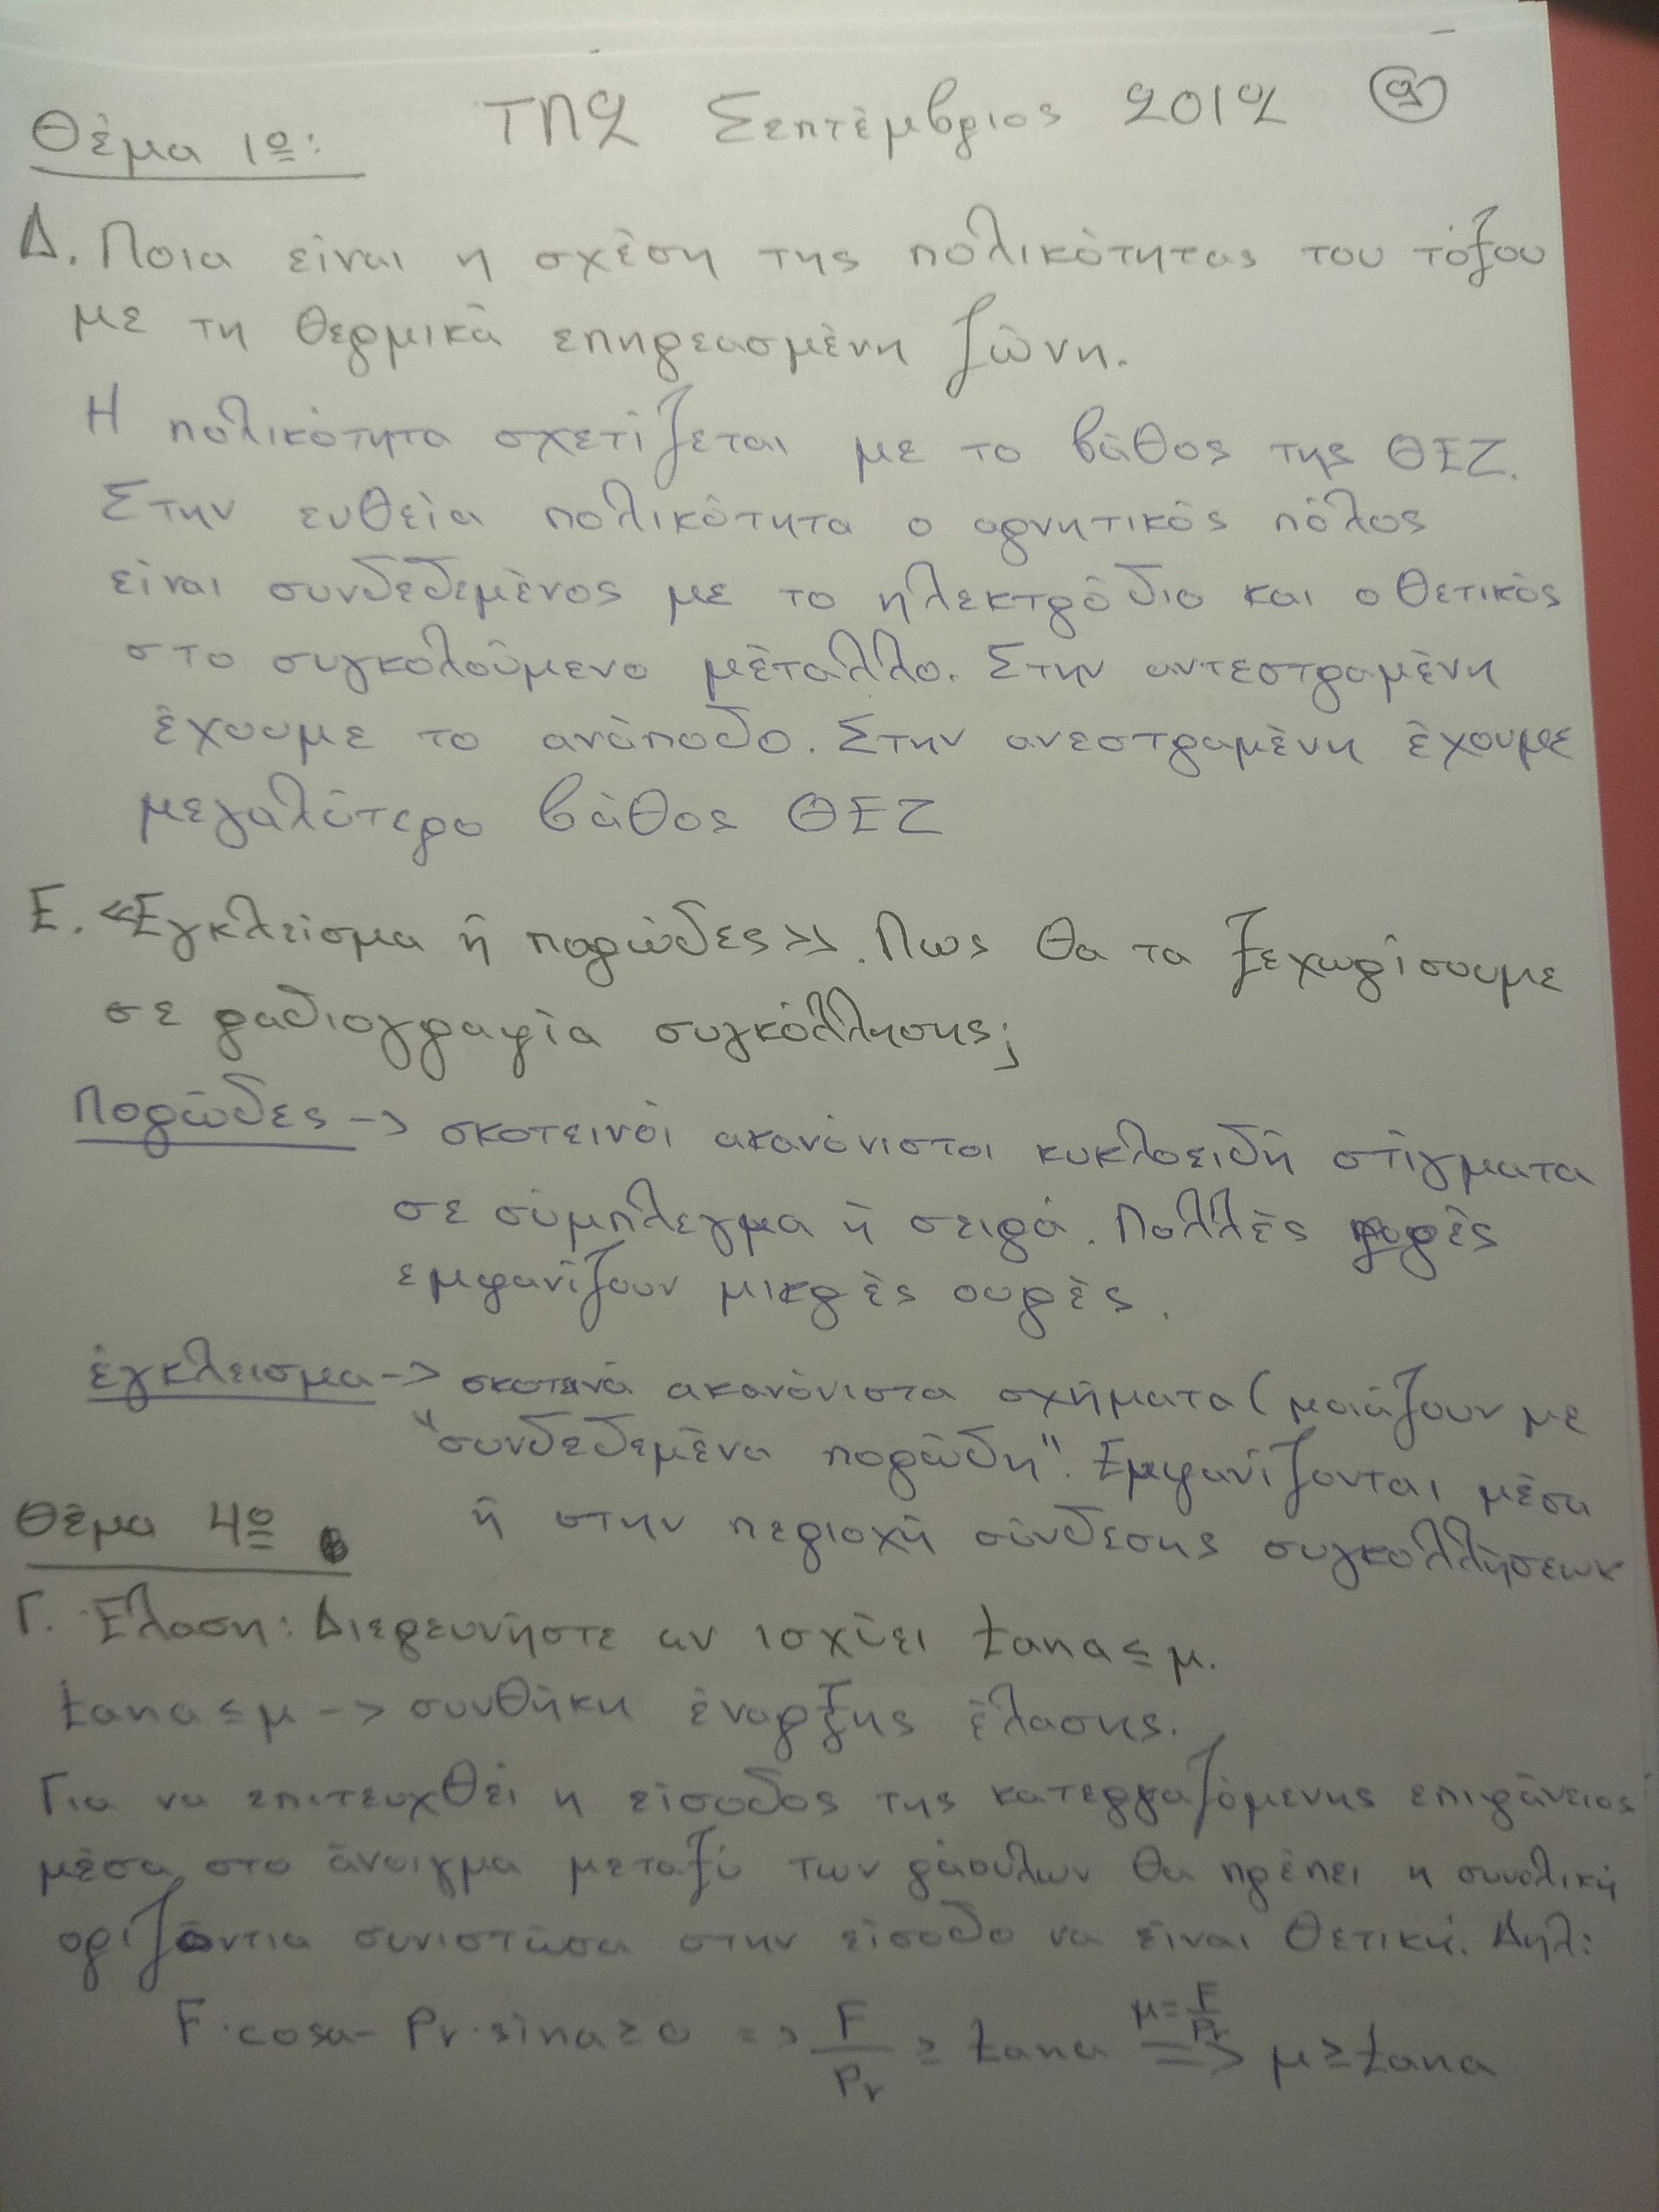 ΤΠΣ Σεπτέμβριος 2012 ⑨
Θέμα 1º:
Δ. Ποια είναι η σχέση της πολικότητας του τόξου
με τη θερμικά επηρεασμένη ζώνη.
Η πολικότητα σχετίζεται με το βάθος της ΘΕΖ.
Στην ευθεία πολικότητα ο αρνητικός πόλος
είναι συνδεδεμένος με το ηλεκτρόδιο και ο θετικός
στο συγκολούμενο μέταλλο. Στην αντεστραμένη
έχουμε το ανάποδο. Στην ανεστραμένη έχουμε
μεγαλύτερο βάθος ΘΕΖ
Ε. «Εγκλεισμα ή πορώδες». Πως θα τα ξεχωρίσουμε
σε ραδιογραφία συγκόλλησης;
Πορώδες -> σκοτεινοί ακανόνιστοι κυκλοειδή στίγματα
σε σύμπλεγμα ή σειρά. Πολλές φορές
εμφανίζουν μικρές ουρές.
έγκλεισμα -> σκοτεινά ακανόνιστα σχήματα (μοιάζουν με
"συνδεδεμένα πορώδη". Εμφανίζονται μέσα
ή στην περιοχή σύνδεσης συγκολλήσεων
Θέμα 4º
Γ. Έλαση: Διερευνήστε αν ισχύει tanα≤μ.
tanα≤μ -> συνθήκη έναρξης έλασης.
Για να επιτευχθεί η είσοδος της κατεργαζόμενης επιφάνειας
μέσα στο άνοιγμα μεταξύ των ράουλων θα πρέπει η συνολική
οριζόντια συνιστώσα στην είσοδο να είναι θετική. Δηλ:
F·cosα - Pr·sinα≥0 => F/Pr ≥ tanα =(μ=F/Pr)=> μ≥tanα